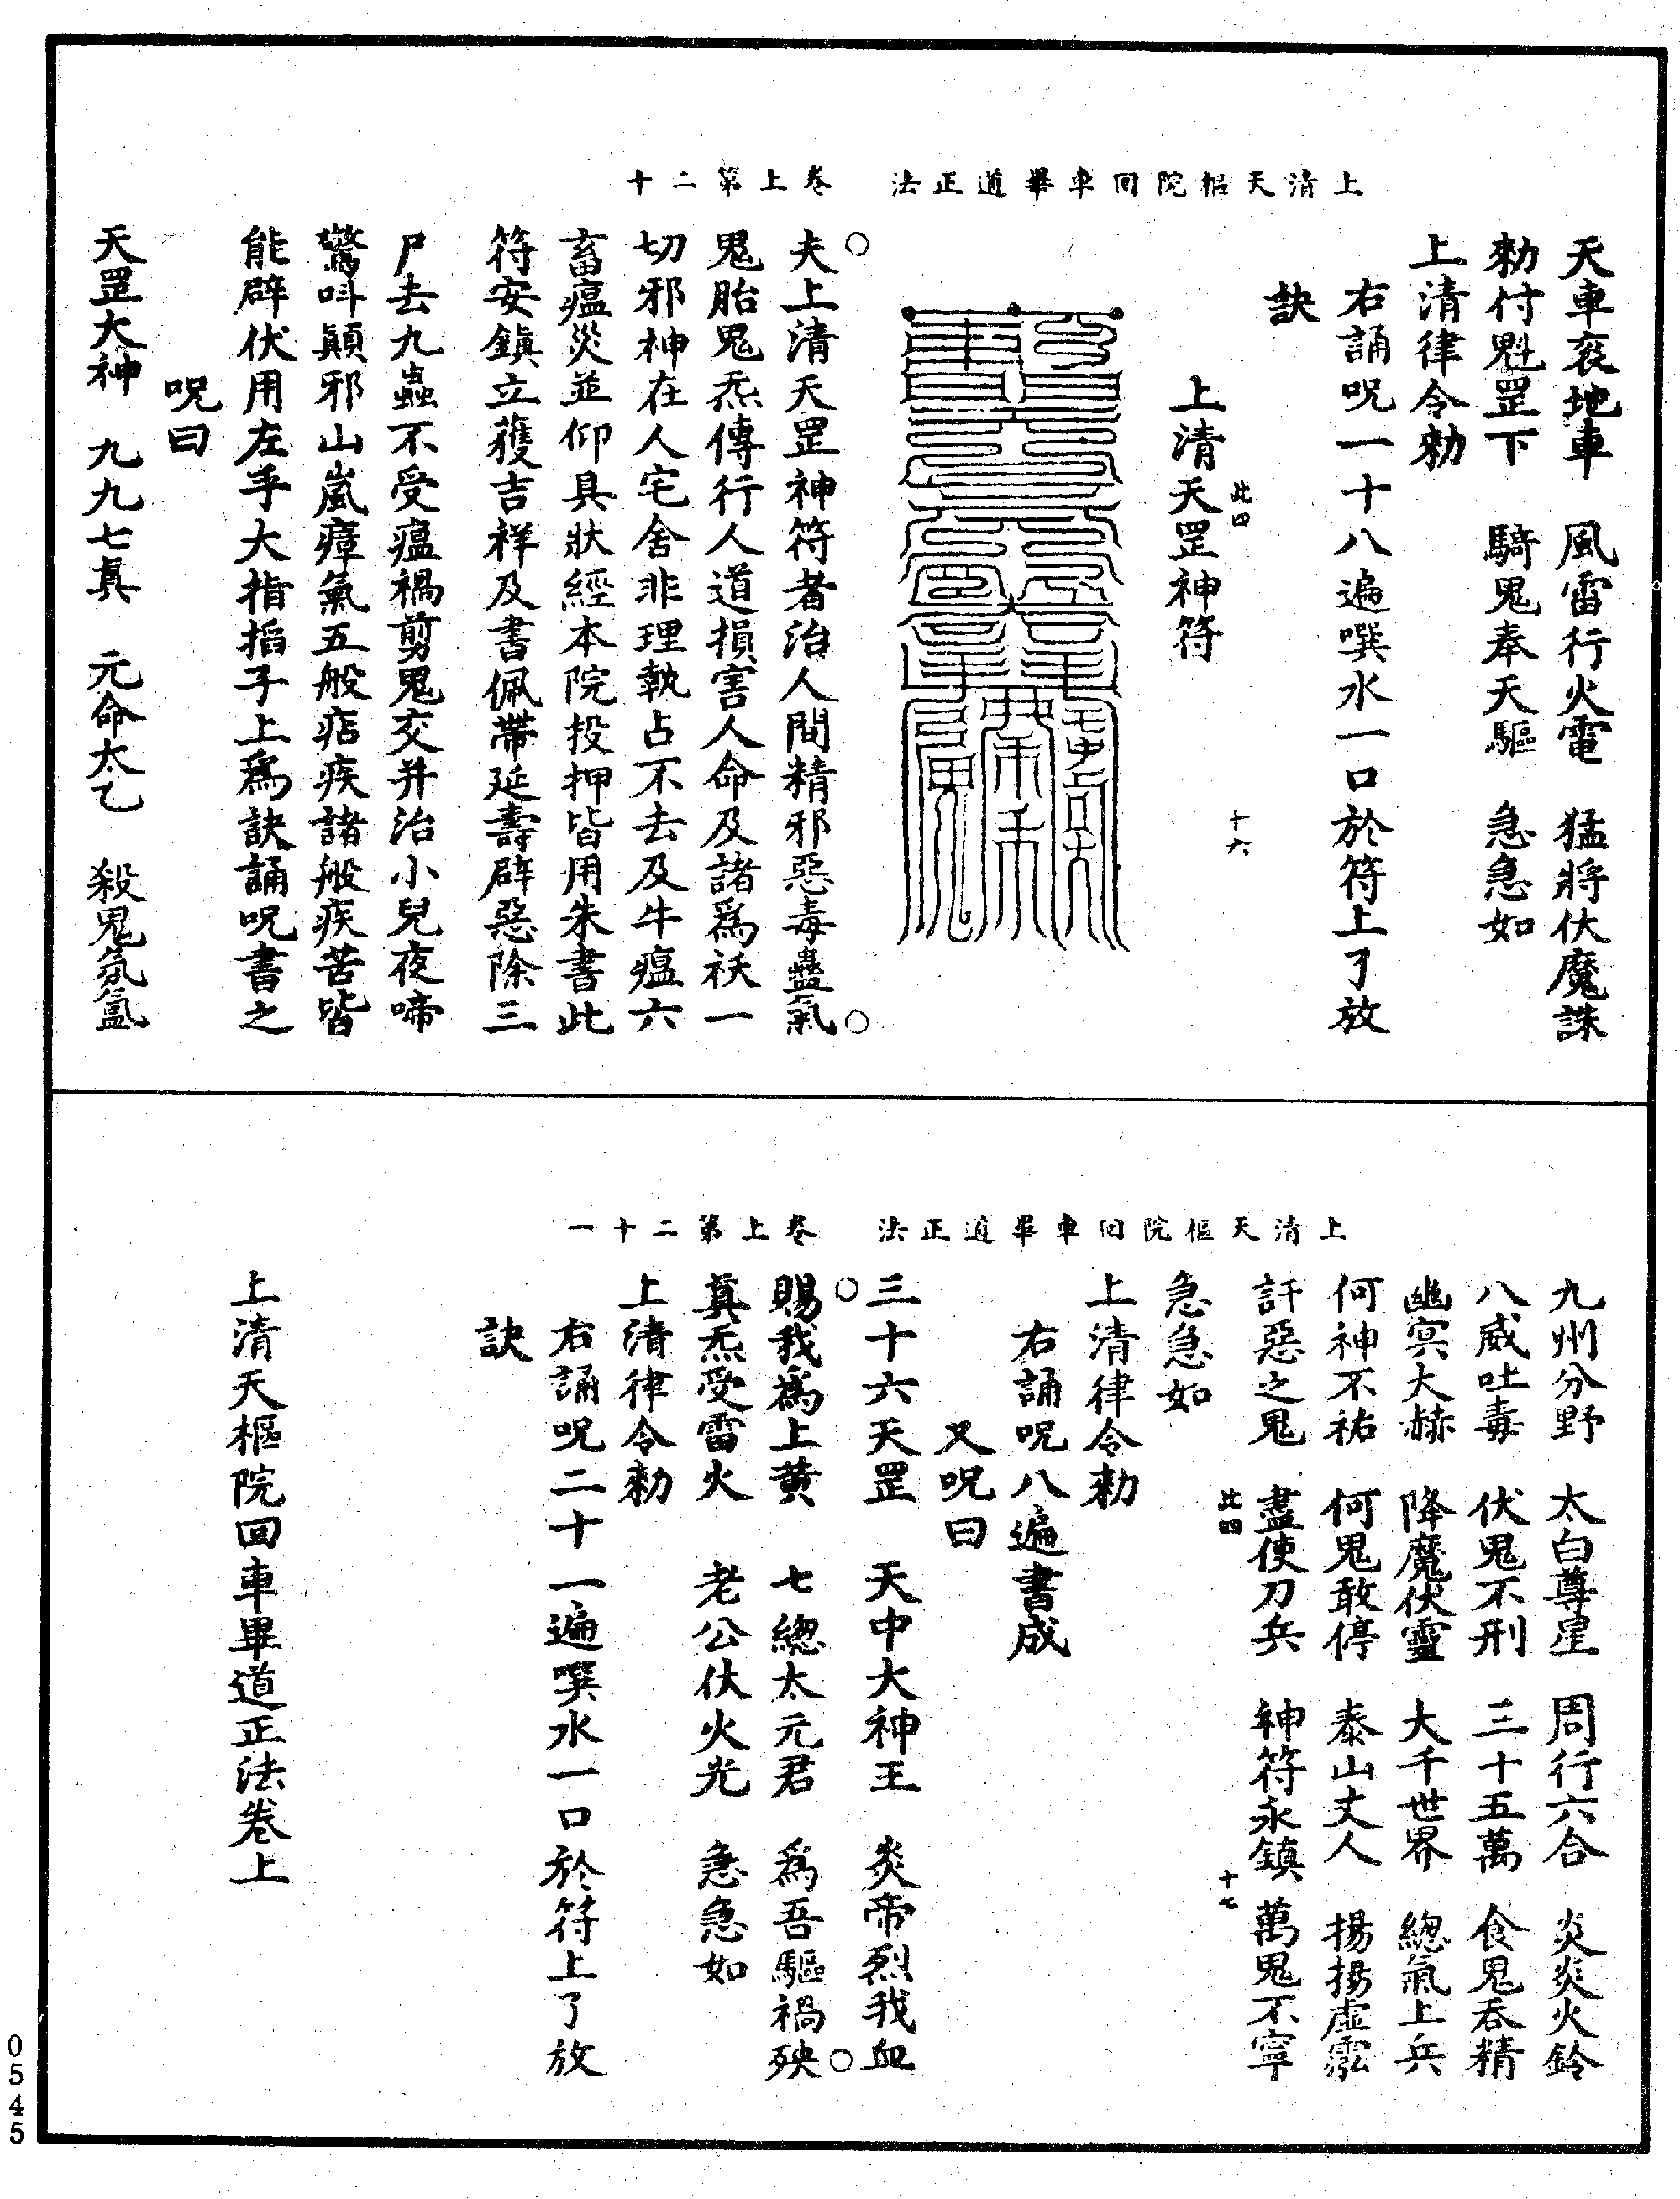 上清天樞院回車畢道正法　卷上第二十
天車衮地車　風雷行火電　猛將伏魔誅
勑付魁罡下　騎鬼奉天驅　急急如
上清律令勑
右誦呪一十八遍噀水一口於符上了放
訣
此四　十六
上清天罡神符
夫上清天罡神符者治人間精邪惡毒蠱氣
鬼胎鬼炁傳行人道損害人命及諸爲祅一
切邪神在人宅舍非理執占不去及牛瘟六
畜瘟災並仰具狀經本院投押皆用朱書此
符安鎮立獲吉祥及書佩帶延壽辟惡除三
尸去九蟲不受瘟禍剪鬼交并治小兒夜啼
驚呌顛邪山嵐瘴氣五般痁疾諸般疾苦皆
能辟伏用左手大指掐子上爲訣誦呪書之
呪曰
天罡大神　九九七真　元命太乙　殺鬼氛氳
上清天樞院回車畢道正法　卷上第二十一
九州分野　太白尊星　周行六合　炎炎火鈴
八威吐毒　伏鬼不刑　三十五萬　食鬼吞精
幽冥大赫　降魔伏靈　大千世界　總氣上兵
何神不祐　何鬼敢停　泰山丈人　揚揚虛雲
訐惡之鬼　盡使刀兵　神符永鎮　萬鬼不寧
此四　十七
急急如
上清律令勑
右誦呪八遍書成
又呪曰
三十六天罡　天中大神王　炎帝烈我血
賜我爲上黄　七總太元君　爲吾驅禍殃
真炁受雷火　老公伏火光　急急如
上清律令勑
右誦呪二十一遍噀水一口於符上了放
訣
上清天樞院回車畢道正法卷上
0545